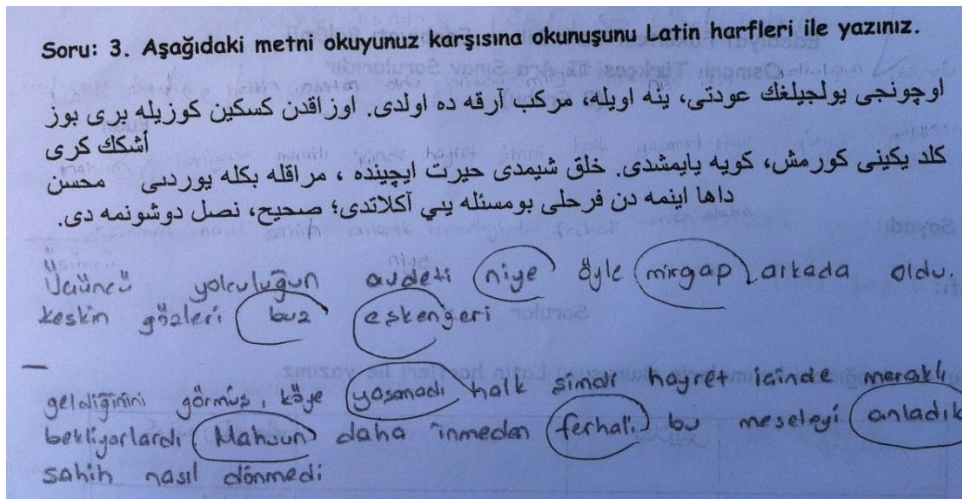 Soru: 3. Aşağıdaki metni okuyunuz karşısına okunuşunu Latin harfleri ile yazınız.
اوچونجی یولجیلغك عودتی، ینه اویله، مركب آرقه ده اولدی. اوزاقدن كسكین كوزیله بری بوز
أشكك كری
كلد یكینی كورمش، كویه یایمشدی. خلق شیمدی حیرت ایچینده ، مراقله بكله یوردی محسن
داها اینمه دن فرحلی بومسئله یی آكلاتدی؛ صحیح، نصل دوشونمه دی.
Üçüncü yolculuğun avdeti niye öyle mirgap arkada oldu.
keskin gözleri buz eskengeri
geldiğinini görmüş, köye yaşamadı halk simdi hayret içinde meraklı
bekliyorlardı Mahsun daha inmeden ferhali bu meseleyi anladık
sahih nasıl dönmedi